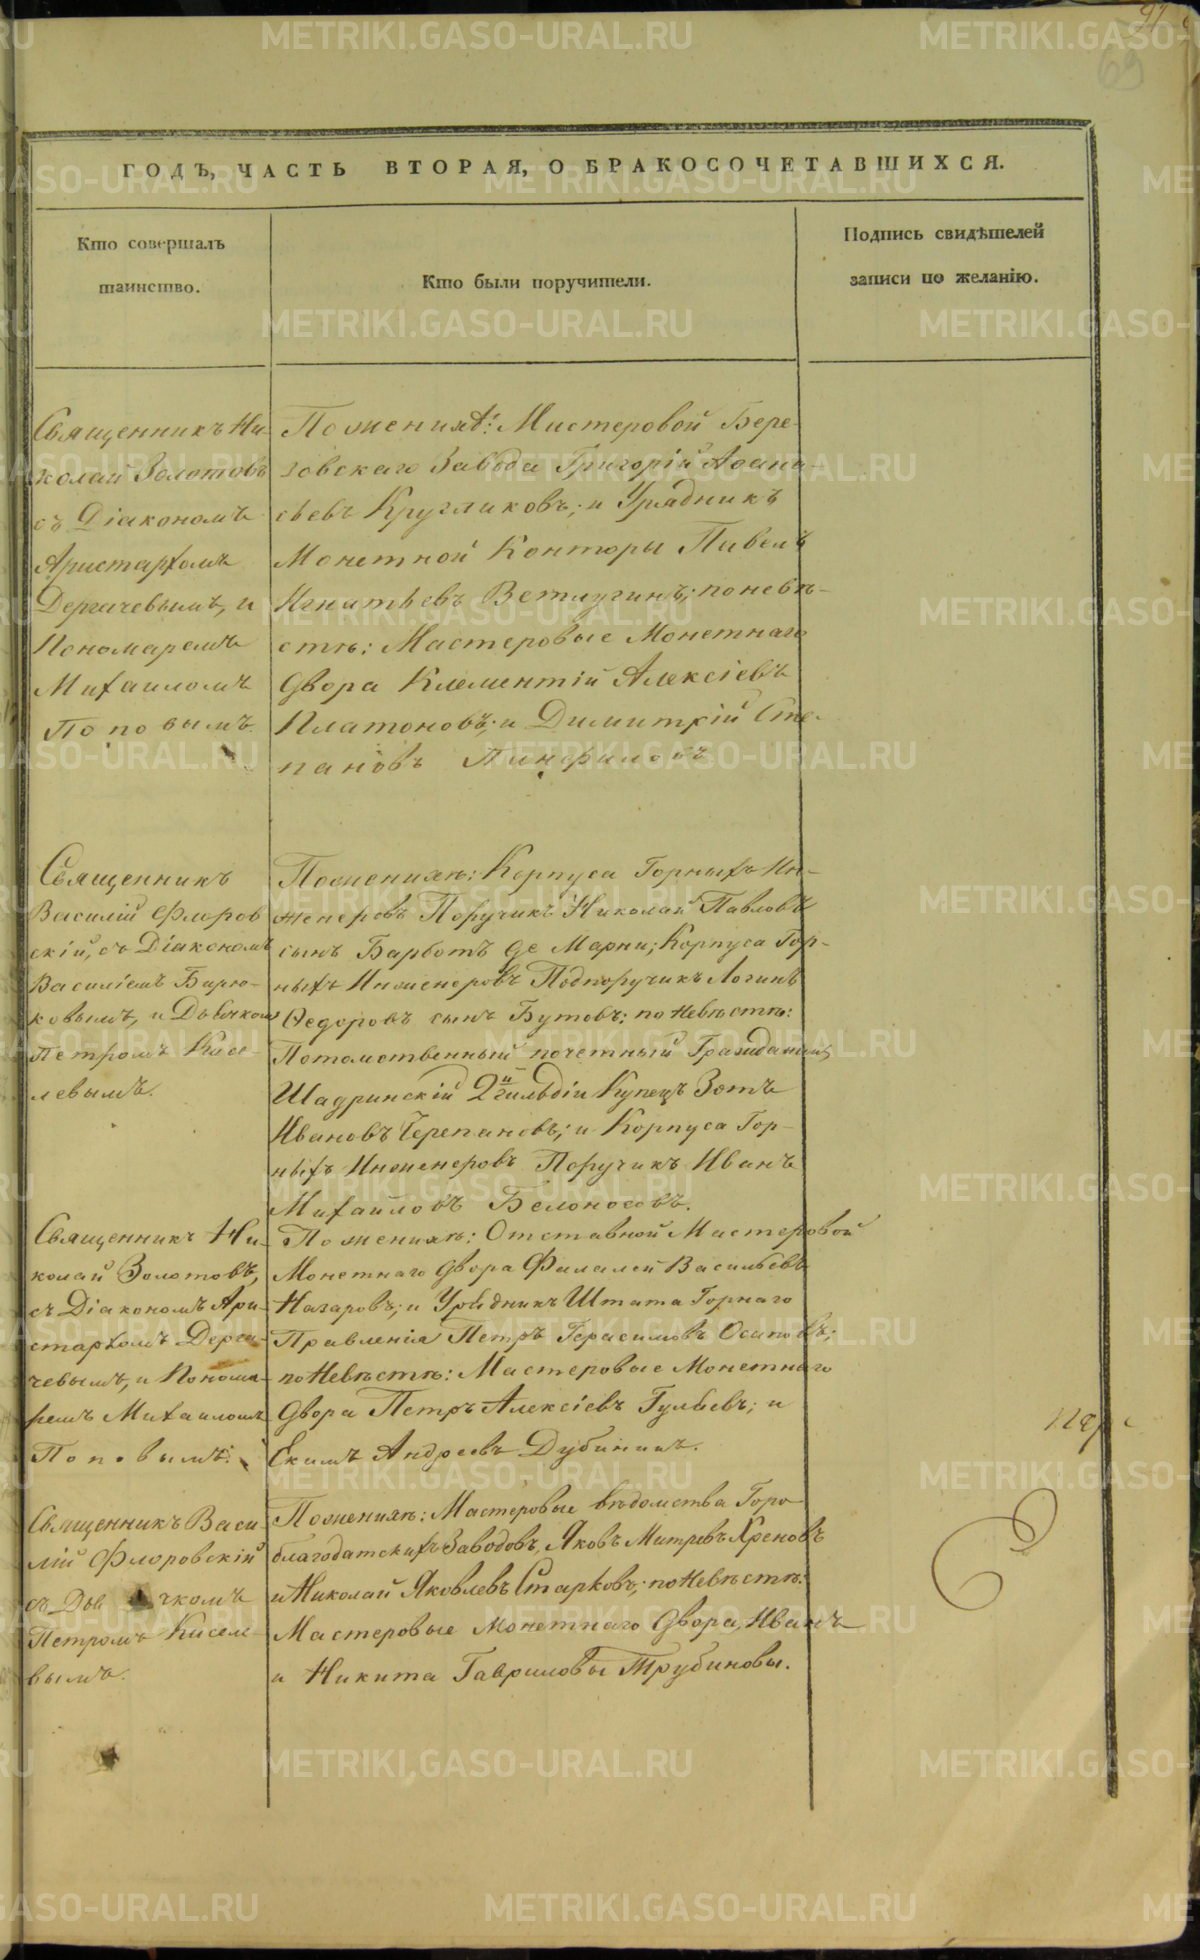 69
ГОДЪ, ЧАСТЬ ВТОРАЯ, О БРАКОСОЧЕТАВШИХСЯ.
Кто совершалъ
таинство.
Кто были поручители.
Подпись свидѣтелей
записи по желанію.
Священникъ Ни-
колай Золотовъ
съ Діакономъ
Аристархомъ
Дергачевымъ, и
Пономаремъ
Михаиломъ
Поповымъ.
По женихѣ: Мастеровой Бере-
зовскаго Завода Григорій Аѳана-
сьевъ Кругляковъ; и Урядникъ
Монетной Конторы Павелъ
Игнатьевъ Ветлугинъ; по невѣ-
стѣ: Мастеровые Монетнаго
Двора Климентій Алексіевъ
Платоновъ; и Димитрій Сте-
пановъ Панфиловъ
Священникъ
Василій Флоров
скій, съ Діакономъ
Василіемъ Бирю-
ковымъ, и Дьячкомъ
Петромъ Кисе-
левымъ.
По женихѣ: Корпуса Горныхъ Ин-
женеровъ Поручикъ Николай Павловъ
сынъ Барботъ де Марни; Корпуса Гор-
ныхъ Инженеровъ Подпоручикъ Логинъ
Ѳедоровъ сынъ Бутовъ; по Невѣстѣ:
Потомственный почетный Гражданинъ
Шадринскій 2й гильдіи Купецъ Зотъ
Ивановъ Черепановъ; и Корпуса Гор-
ныхъ Инженеровъ Поручикъ Иванъ
Михайловъ Белоносовъ.
Священникъ Ни-
колай Золотовъ,
съ Діакономъ Ари-
стархомъ Дерга-
чевымъ, и Понома-
ремъ Михаиломъ
Поповымъ.
По женихѣ: Отставной Мастеровой
Монетнаго Двора Филалей Васильевъ
Назаровъ; и Урядникъ Штата Горнаго
Правленія Петръ Герасимовъ Осиповъ;
по Невѣстѣ: Мастеровые Монетнаго
Двора Петръ Алексіевъ Гульевъ; и
Екимъ Андреевъ Дубининъ.
Священникъ Васи-
лій Флоровскій
съ Дьячкомъ
Петромъ Кисел-
вымъ.
По женихѣ: Мастеровые вѣдомства Горо-
благодатскихъ Заводовъ, Яковъ Митревъ Хреновъ
и Николай Яковлевъ Старковъ; по Невѣстѣ:
Мастеровые Монетнаго Двора, Иванъ
и Никита Гавриловы Трубиновы.